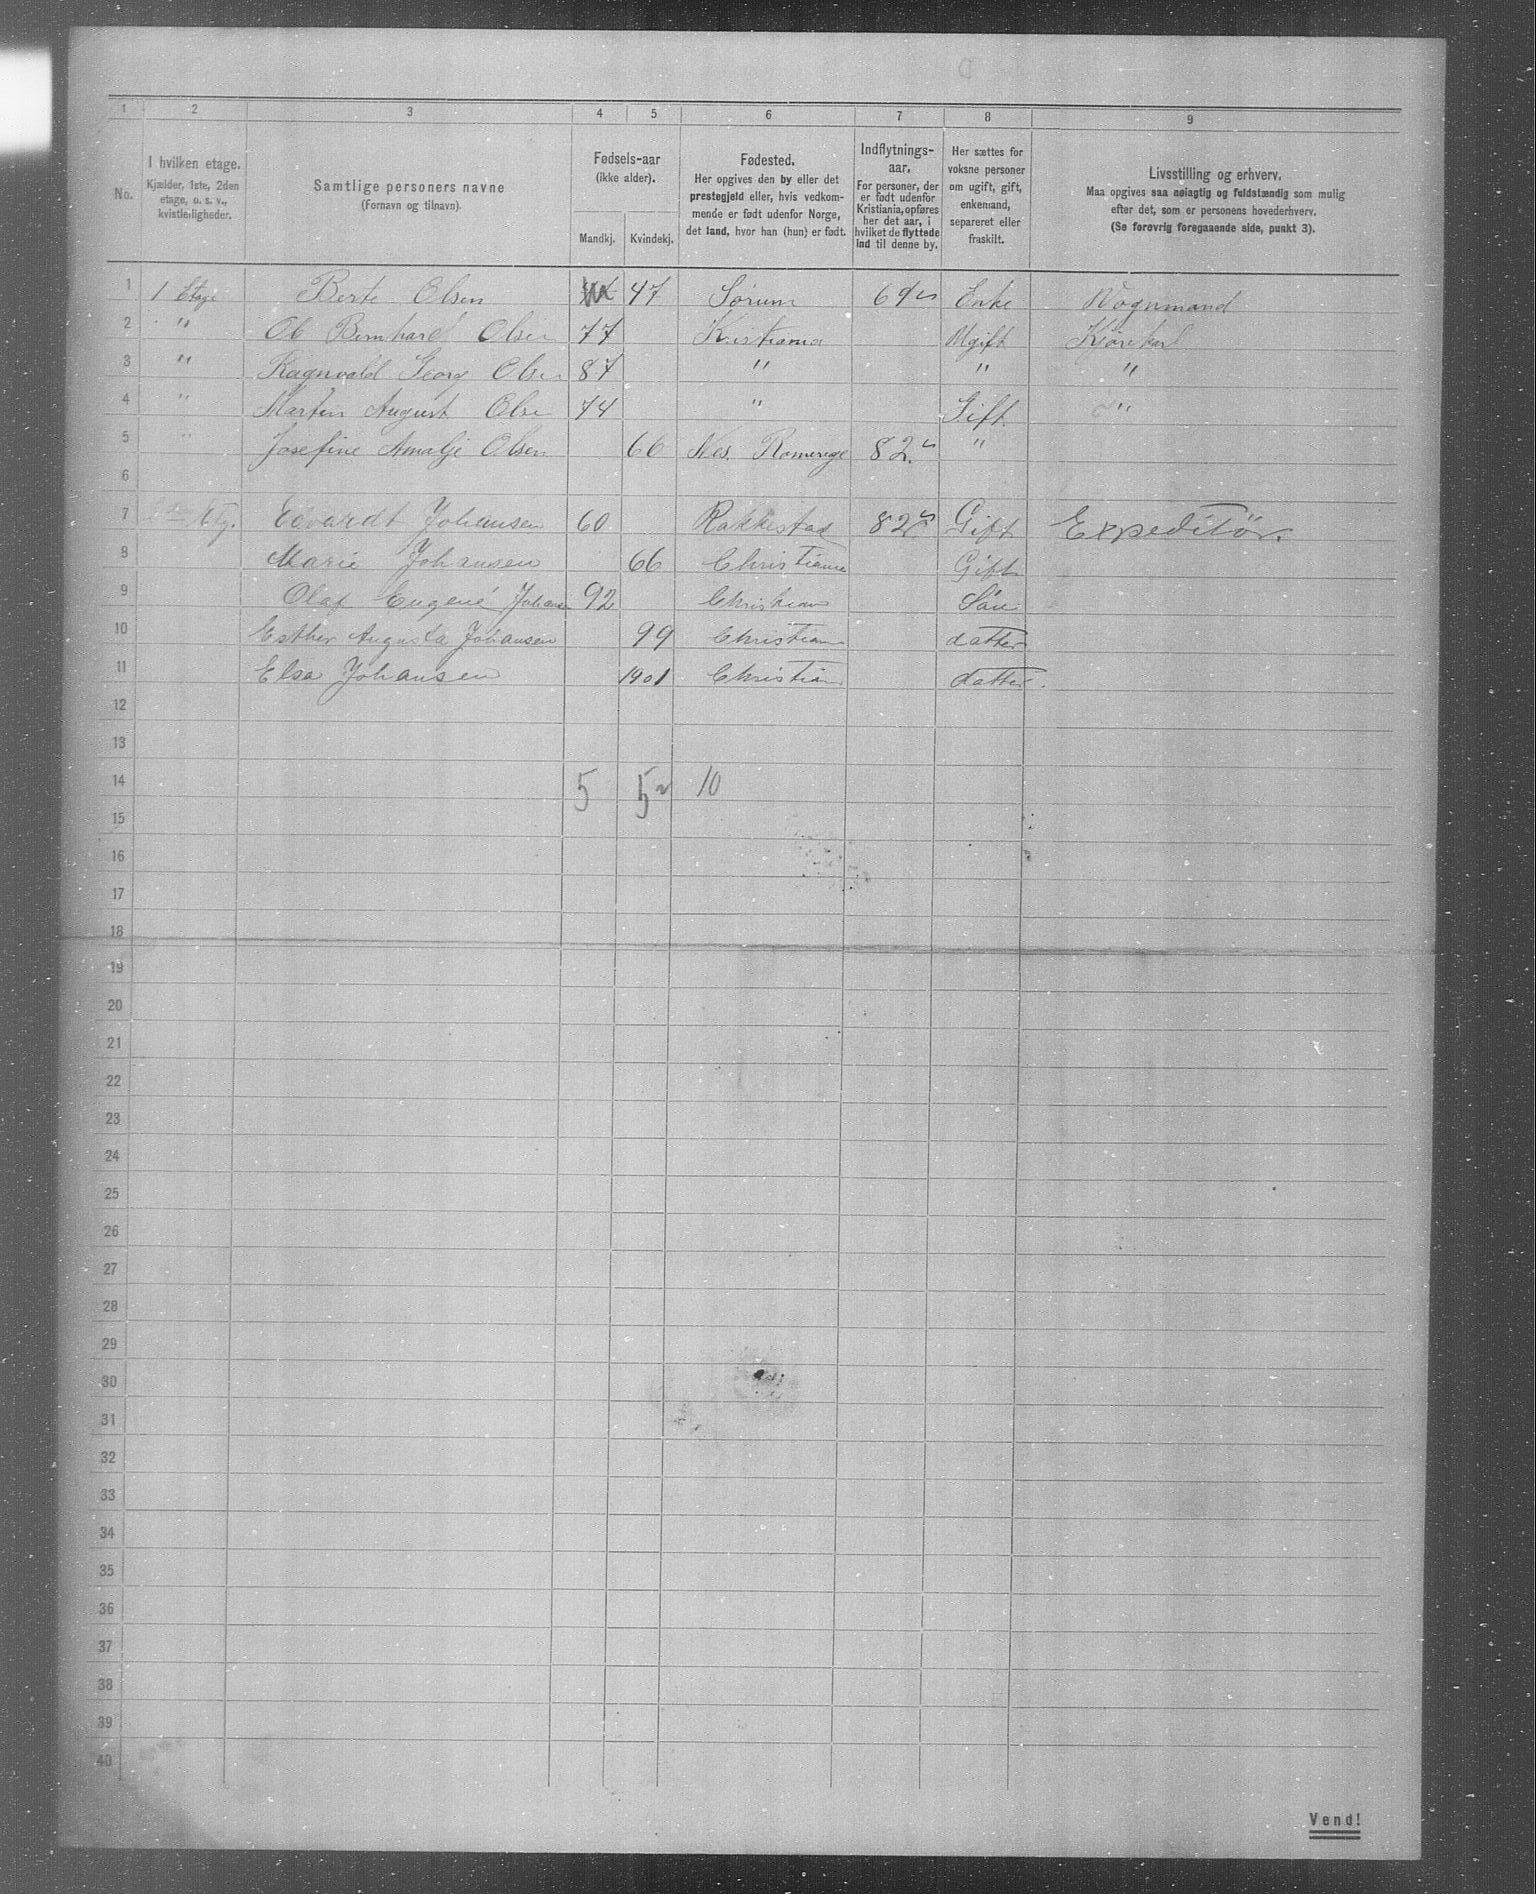 1 2 3 4 5 6 7 8 9
No. I hvilken etage. Kjælder, 1ste, 2den etage, o. s. v., kvistleiligheder. Samtlige personers navne (Fornavn og tilnavn). Fødsels-aar (ikke alder). Mandkj. Kvindekj. Fødested. Her opgives den by eller det prestegjeld eller, hvis vedkommende er født udenfor Norge, det land, hvor han (hun) er født. Indflytnings-aar. For personer, der er født udenfor Kristiania, opføres her det aar, i hvilket de flyttede ind til denne by. Her sættes for voksne personer om ugift, gift, enkemand, separeret eller fraskilt. Livsstilling og erhverv. Maa opgives saa nøiagtig og fuldstændig som mulig efter det, som er personens hovederhverv. (Se forøvrig foregaaende side, punkt 3).
1 1 Etage Berte Olsen 47 Sørum 69 Enke Vognmand
2 " Bernhard Olsen 77 Kristiania Ugift Kjørekarl
3 " Ragnvald Georg Olsen 87 " " "
4 " Martin August Olse 74 " Gift "
5 " Josefine Amalje Olsen 66 Nes. Romerige 82 "
6
7 Etg. Edvardt Johansen 60 Rakkestad 82 Gift Expeditör.
8 Marie Johansen 66 Christiania Gift
9 Olaf Eugené Johansen 92 Christian Sön
10 Esther Augusta Johansen 99 Christian datter
11 Elsa Johansen 1901 Christian datter.
12
13
14 5 5 10
15
16
17
18
19
20
21
22
23
24
25
26
27
28
29
30
31
32
33
34
35
36
37
38
39
40
Vend!